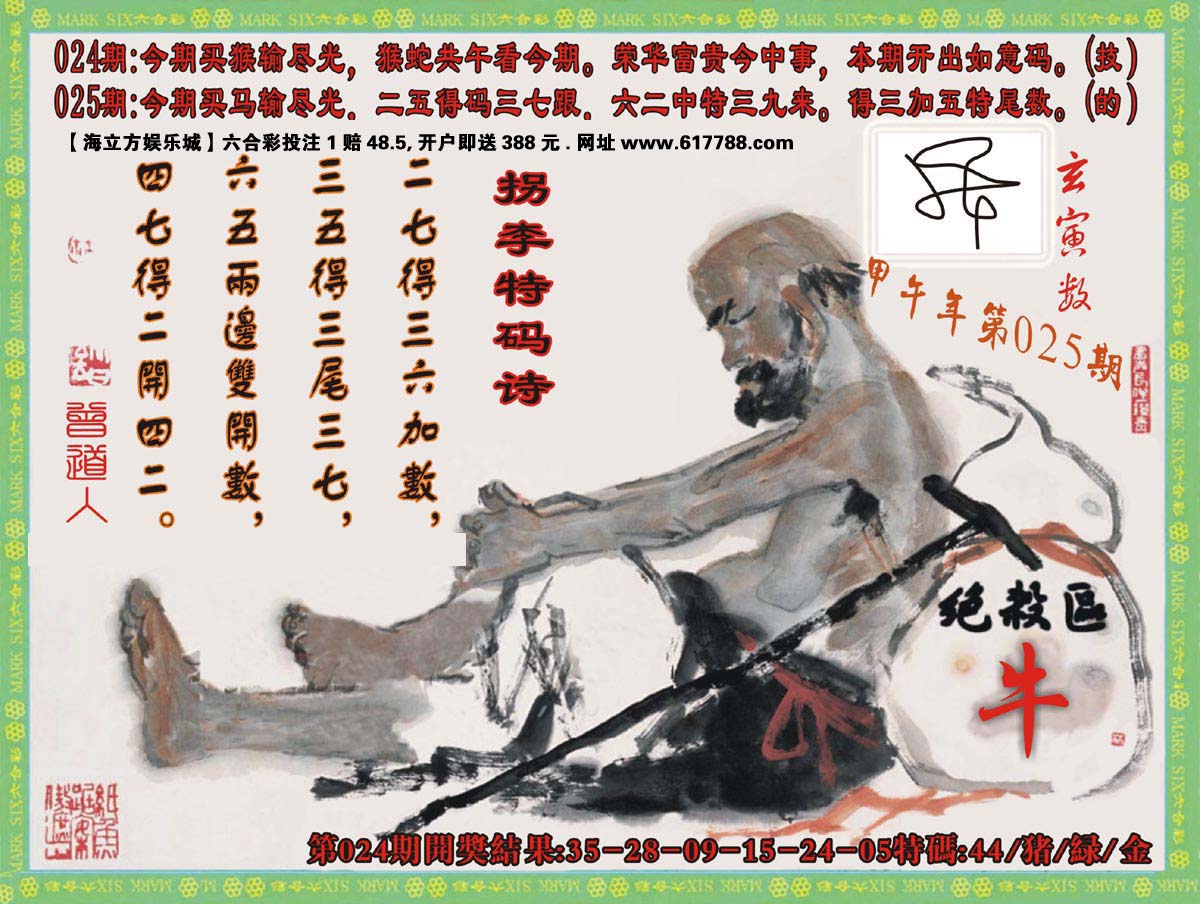 MARK SIX六合彩
024期:今期买猴输尽光，猴蛇共午看今期。荣华富贵今中事，本期开出如意码。(技)
025期:今期买马输尽光．二五得码三七跟．六二中特三九来。得三加五特尾数。(的)
【海立方娱乐城】六合彩投注1赔48.5,开户即送388元.网址www.617788.com
玄寅数
甲午年第025期
拐李特码诗
二七得三六加數，
三五得三尾三七，
六五兩邊雙開數，
四七得二開四二。
曾道人
绝殺區
牛
第024期開獎結果:35-28-09-15-24-05特碼:44/猪/緑/金